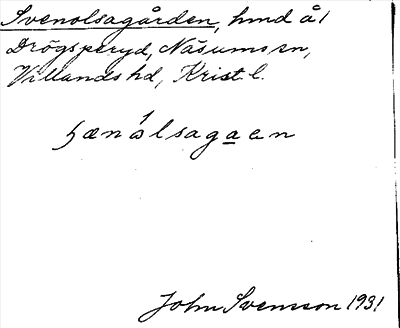 Svenolsagården, hmd å 1
Drögsperyd, Näsums sn,
Villands hd, Krist. l.
hænólsagaen
John Svensson 1931